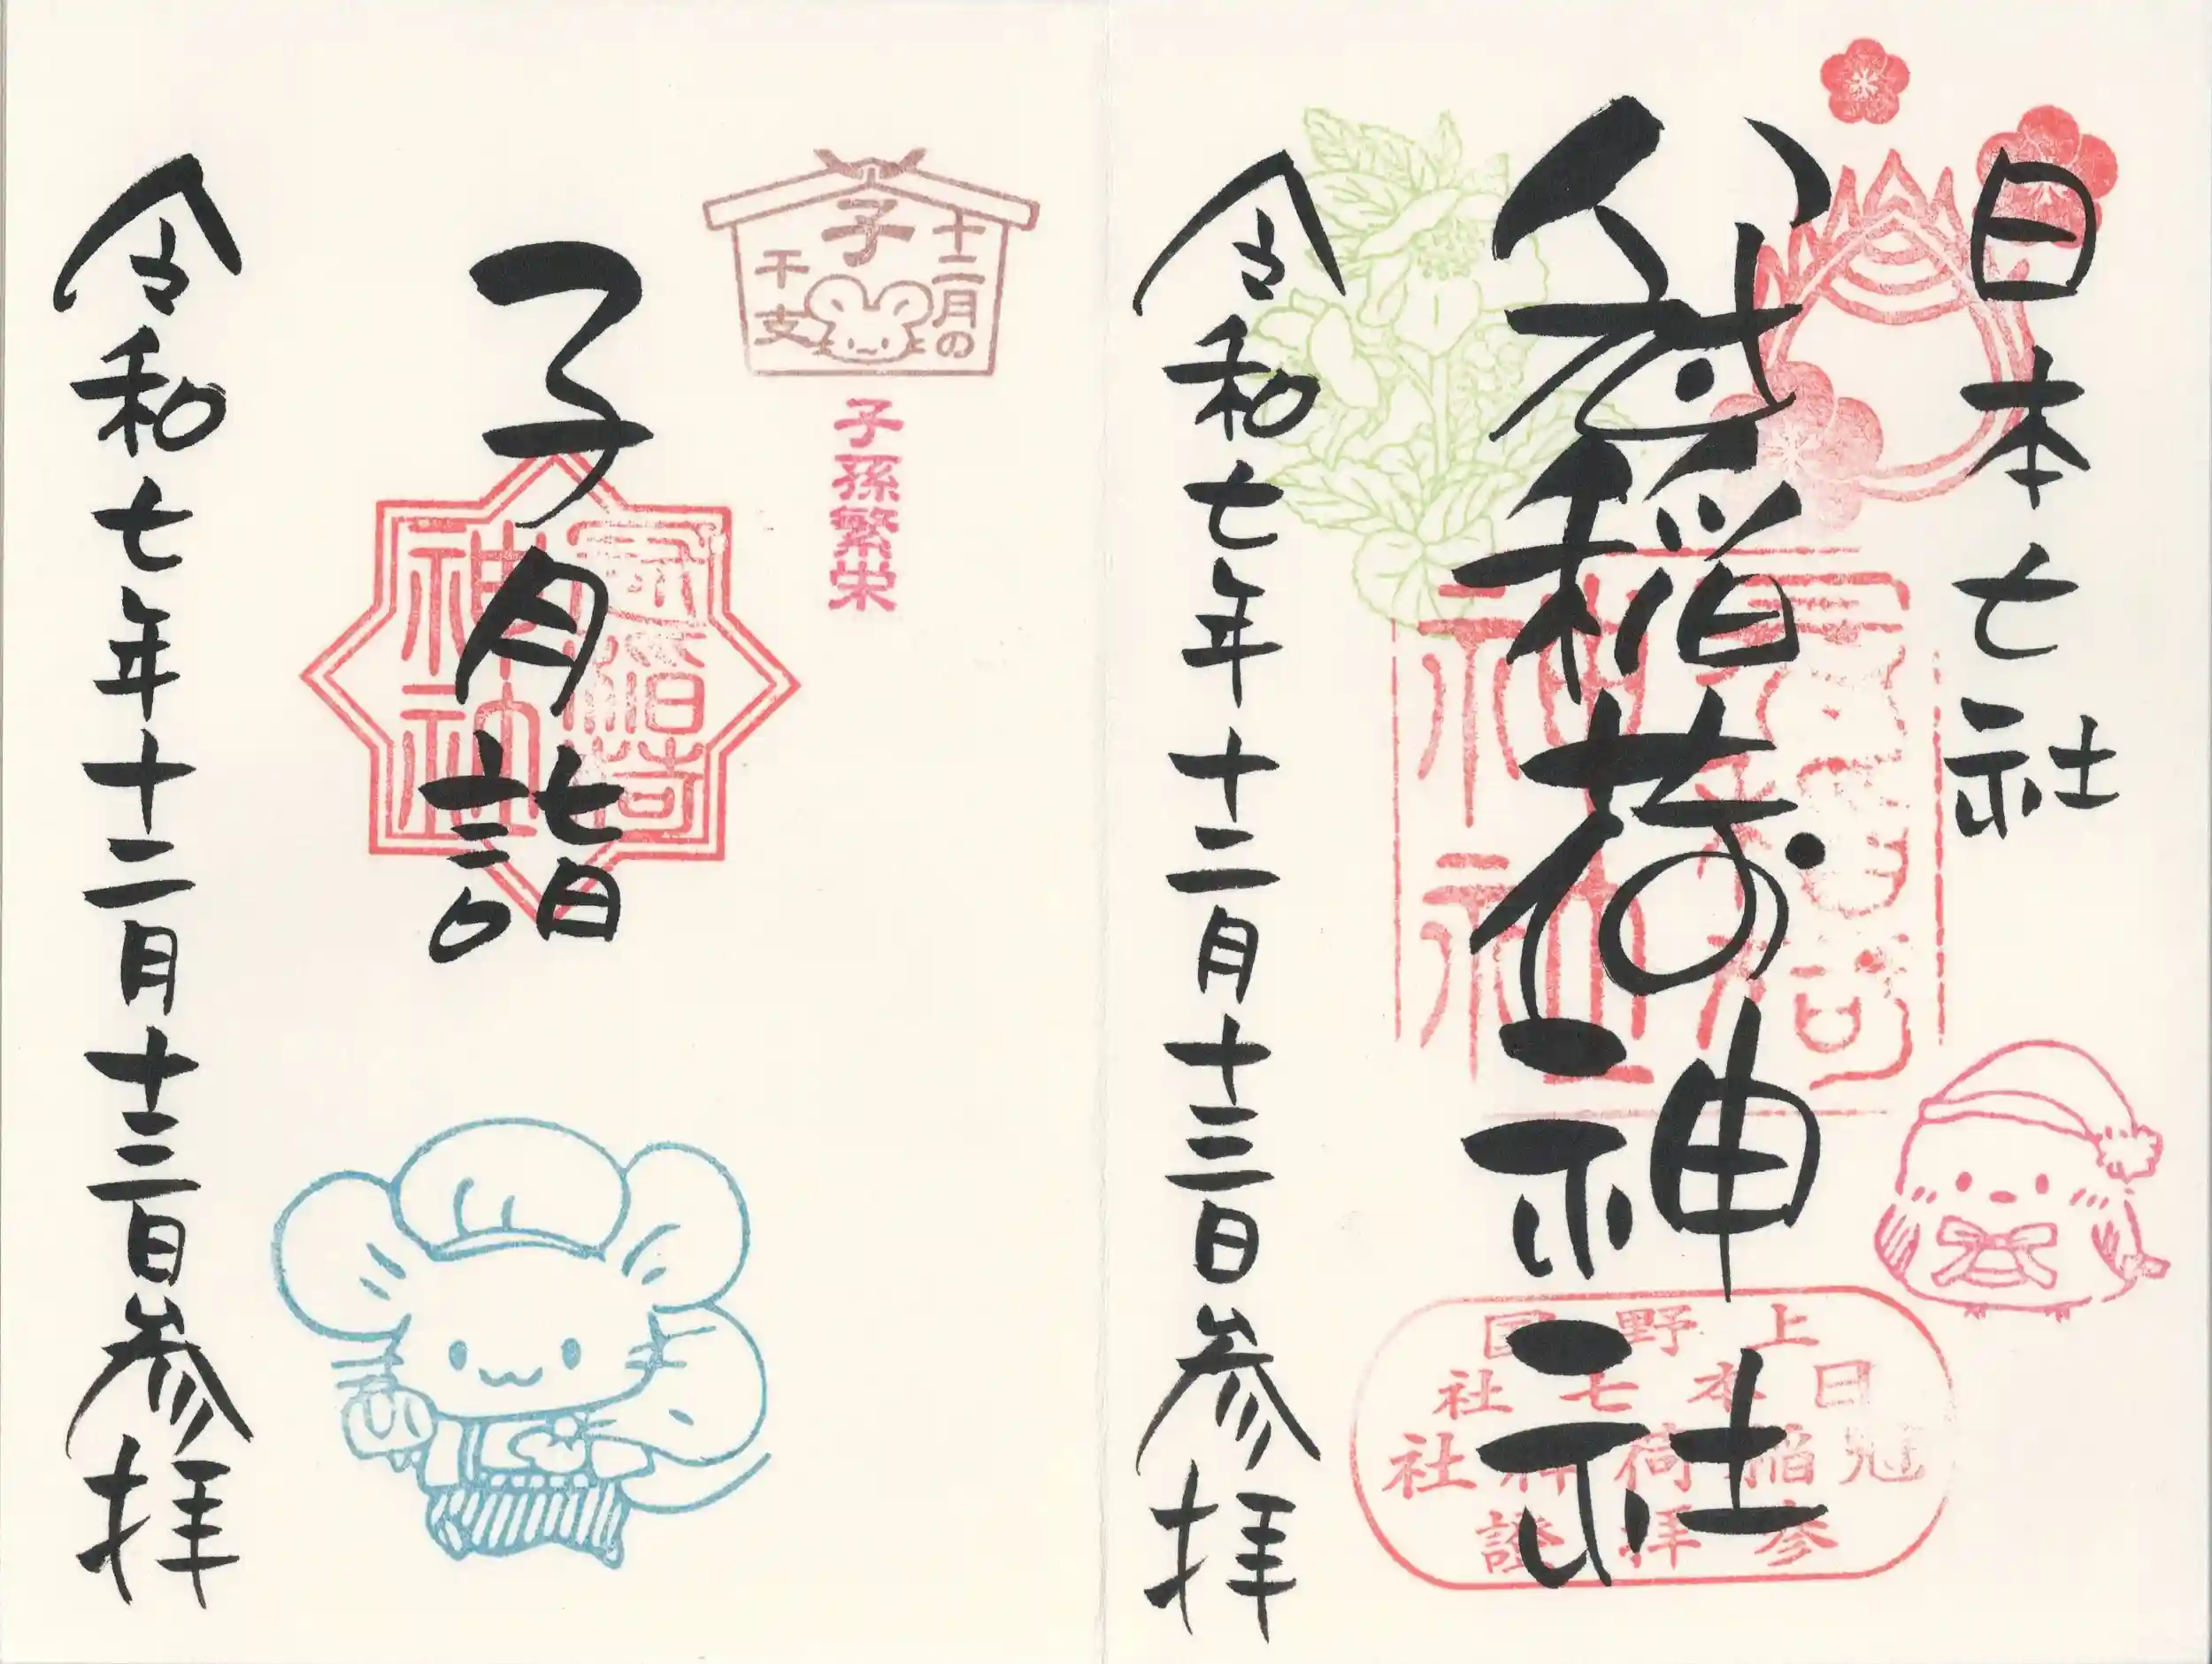 日本七社
冠稲荷神社
令和七年十二月十三日参拝
上野国
日本七社
冠稲荷神社
参拝證
十二月の
子
干支
子孫繁栄
子月詣
冠稲荷
神社
令和七年十二月十三日参拝